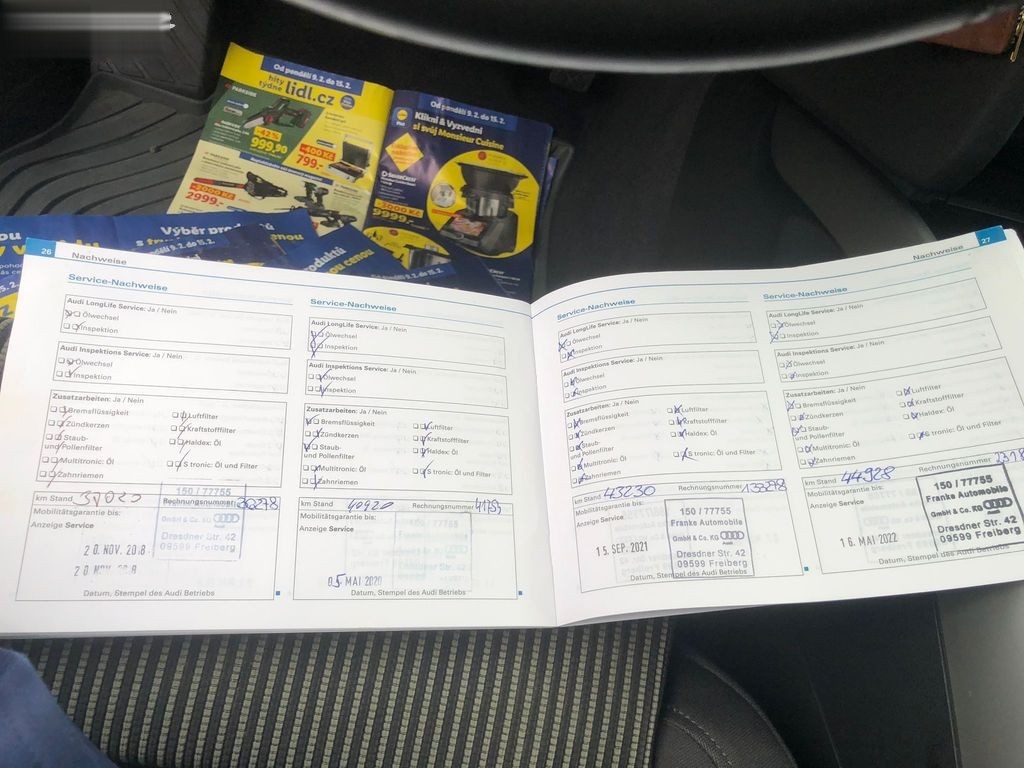 Od pondělí 9. 2. do 15. 2.
hity
týdne
lidl.cz
PARKSIDE
-42 %
999,90
-400 Kč
799,-
-2000 Kč
2999.-
Od pondělí 9. 2. do 15. 2.
Klikni & Vyzvedni
si svůj Monsieur Cuisine
SILVERCREST
-3000 Kč
9999.-
Výběr
26
Nachweise
Service-Nachweise
Audi LongLife Service: Ja / Nein
Ölwechsel
Inspektion
Audi Inspektions Service: Ja / Nein
Ölwechsel
Inspektion
Zusatzarbeiten: Ja / Nein
Bremsflüssigkeit
Luftfilter
Zündkerzen
Kraftstofffilter
Staub-
und Pollenfilter
Haldex: Öl
Multitronic: Öl
S tronic: Öl und Filter
Zahnriemen
km Stand
Rechnungsnummer
Mobilitätsgarantie bis:
Anzeige Service
150 / 77755
GmbH & Co. KG
20. NOV. 20.8
Dresdner Str. 42
09599 Freiberg
Datum, Stempel des Audi Betriebs
Service-Nachweise
Audi LongLife Service: Ja / Nein
Ölwechsel
Inspektion
Audi Inspektions Service: Ja / Nein
Ölwechsel
Inspektion
Zusatzarbeiten: Ja / Nein
Bremsflüssigkeit
Luftfilter
Zündkerzen
Kraftstofffilter
Staub-
und Pollenfilter
Haldex: Öl
Multitronic: Öl
S tronic: Öl und Filter
Zahnriemen
km Stand 40920 Rechnungsnummer
Mobilitätsgarantie bis:
Anzeige Service
05 MAI 2020
Datum, Stempel des Audi Betriebs
27
Nachweise
Service-Nachweise
Audi LongLife Service: Ja / Nein
Ölwechsel
Inspektion
Audi Inspektions Service: Ja / Nein
Ölwechsel
Inspektion
Zusatzarbeiten: Ja / Nein
Bremsflüssigkeit
Luftfilter
Zündkerzen
Kraftstofffilter
Staub-
und Pollenfilter
Haldex: Öl
Multitronic: Öl
S tronic: Öl und Filter
Zahnriemen
km Stand 43230 Rechnungsnummer
Mobilitätsgarantie bis:
Anzeige Service
150 / 77755
Franke Automobile
GmbH & Co. KG Audi
Dresdner Str. 42
09599 Freiberg
15 SEP. 2021
Datum, Stempel des Audi Betriebs
Service-Nachweise
Audi LongLife Service: Ja / Nein
Ölwechsel
Inspektion
Audi Inspektions Service: Ja / Nein
Ölwechsel
Inspektion
Zusatzarbeiten: Ja / Nein
Bremsflüssigkeit
Luftfilter
Zündkerzen
Kraftstofffilter
Staub-
und Pollenfilter
Haldex: Öl
Multitronic: Öl
S tronic: Öl und Filter
Zahnriemen
km Stand 44928 Rechnungsnummer
Mobilitätsgarantie bis:
Anzeige Service
150 / 77755
Franke Automobile
GmbH & Co. KG Audi
Dresdner Str. 42
09599 Freiberg
16. MAI 2022
Datum, Stempel des Audi Betriebs